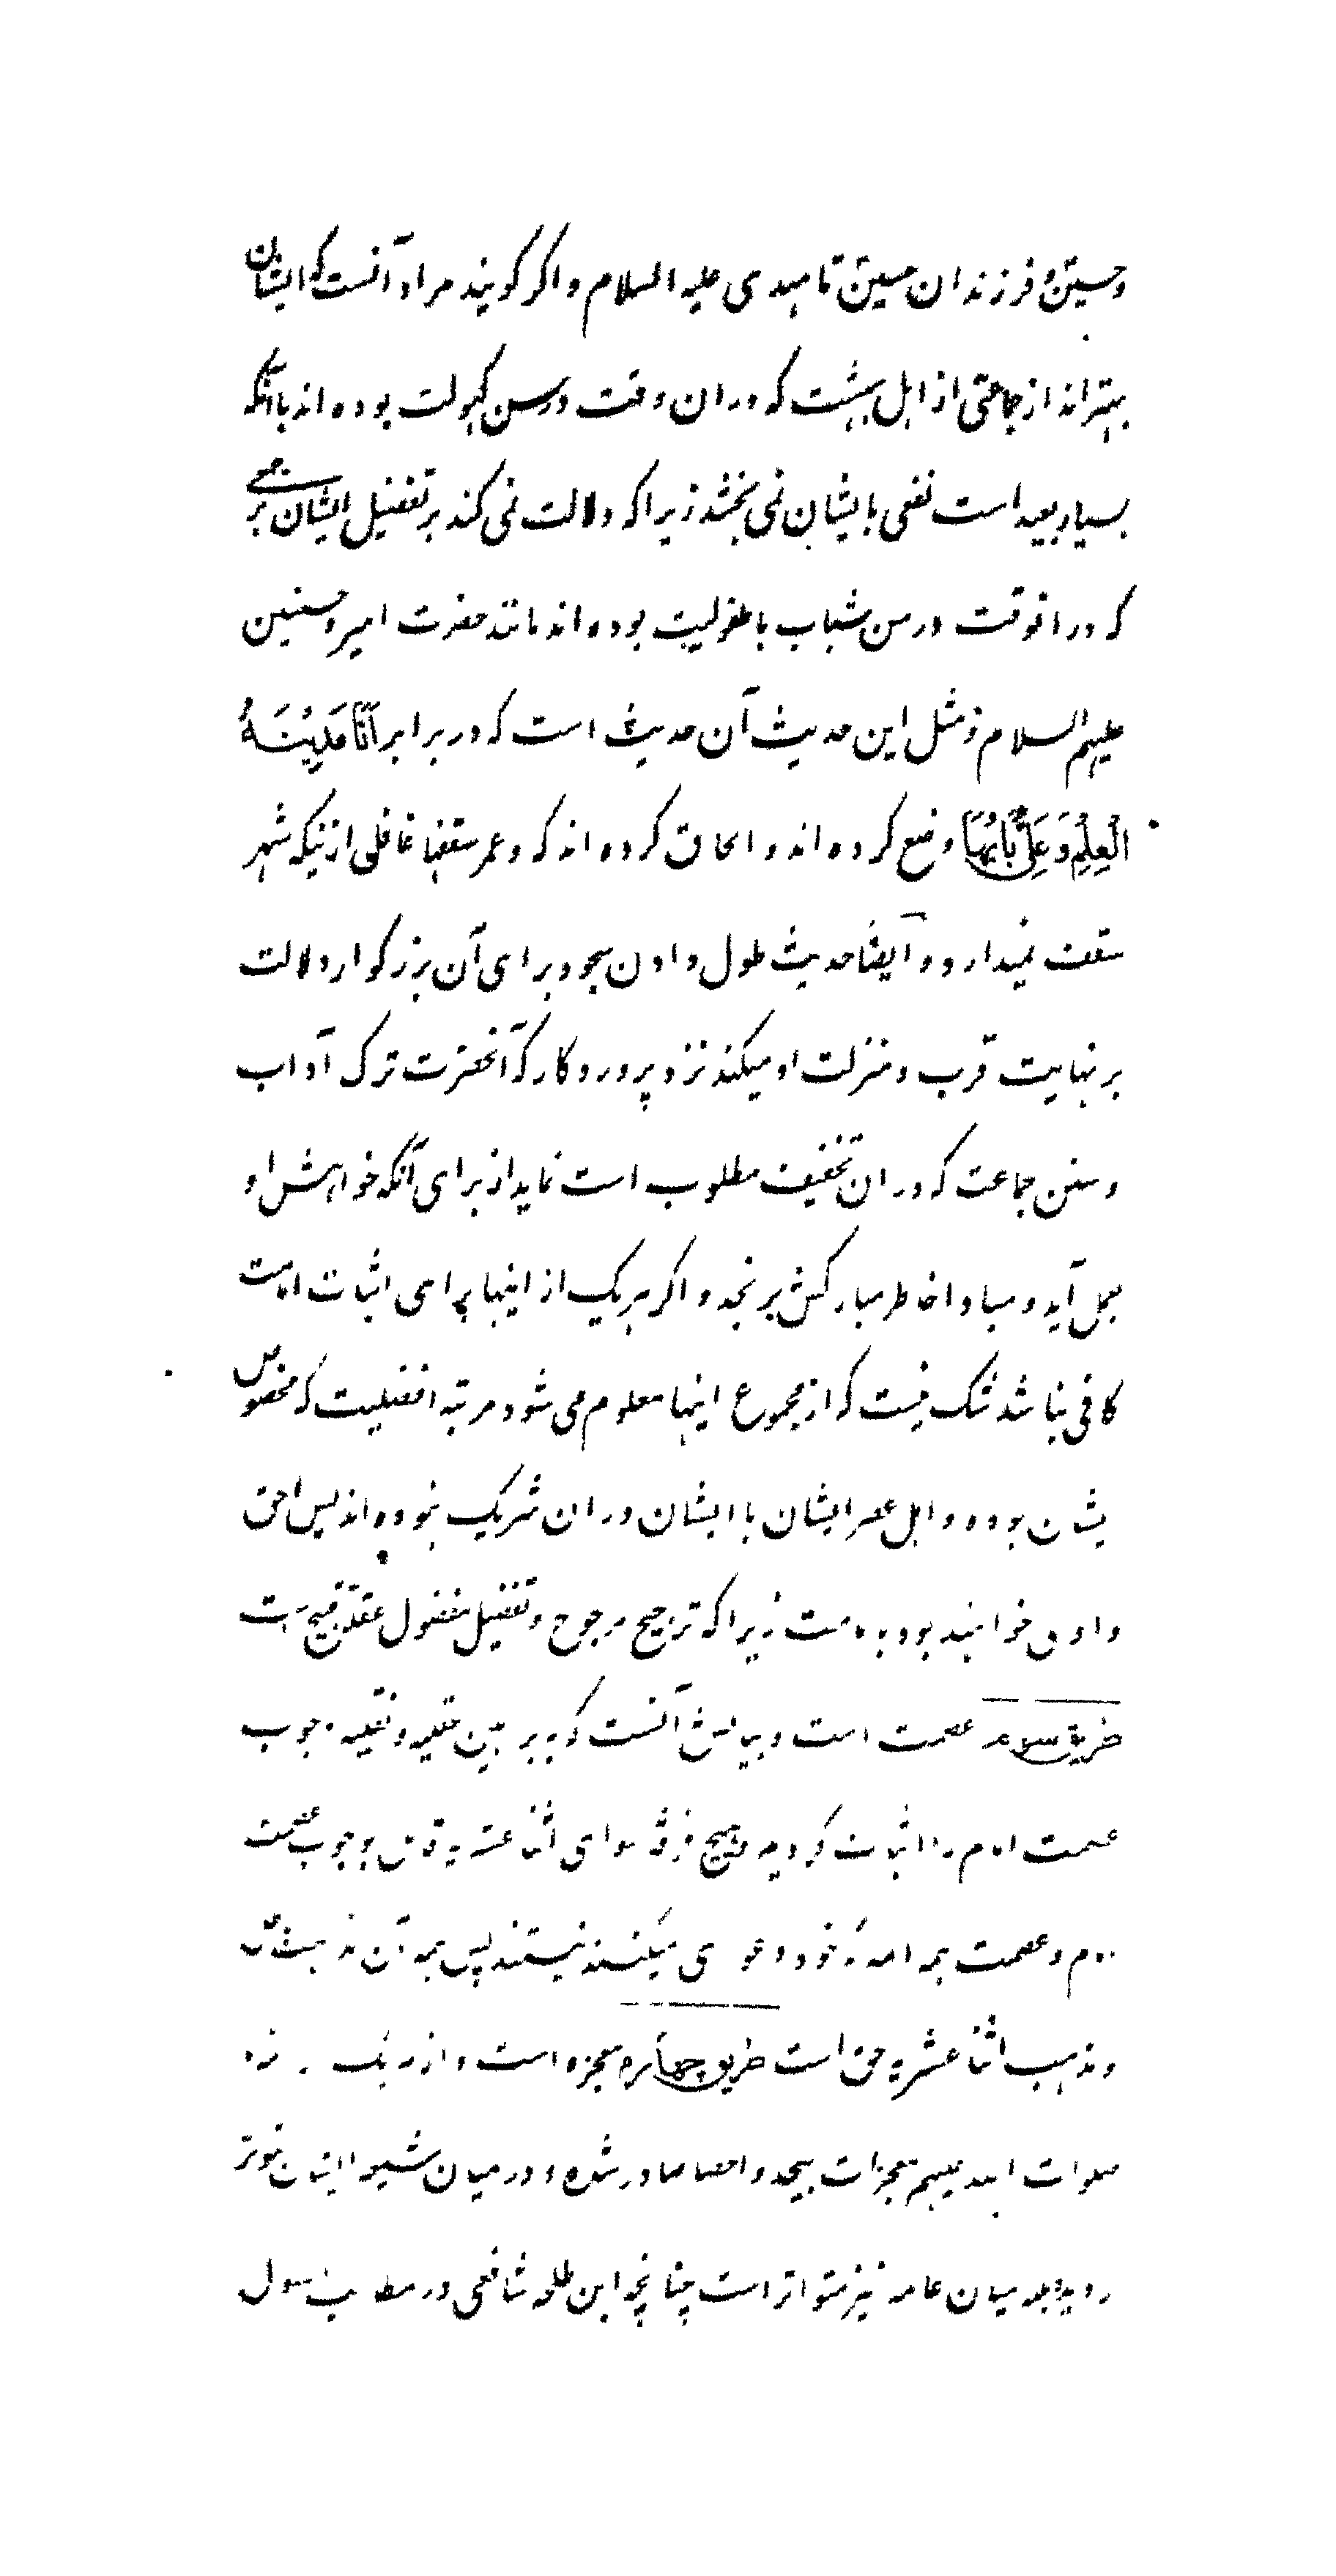 و حسین و فرزندان حسین تا مهدی علیه السلام و اگر گویند مراد آنست که ایشان
بهتراند از جماعتی از اهل بهشت که دران وقت در سن کهولت بوده اند با آنکه
بسیار بعید است نفعی بایشان نمی بخشد زیرا که دلالت نمی کند بر تفضیل ایشان بر جمعی
که درانوقت در سن شباب یا طفولیت بوده اند مانند حضرت امیر و حسنین
علیهم السلام و مثل این حدیث آن حدیث است که در برابر اَنَا مَدِیْنَةُ
الْعِلْمِ وَ عَلِیٌّ بَابُهَا وضع کرده اند و الحاق کرده اند که و عمر سقفها غافلی ازینکه شهر
سقف نمیدارد و ایضا حدیث طول دادن سجود برای آن بزرگوار دلالت
بر نهایت قرب و منزلت او میکند نزد پروردگار که آنحضرت ترک آداب
و سنن جماعت که دران تخفیف مطلوب است نماید از برای آنکه خواهش او
بعمل آید و مبادا خاطر مبارکش برنجد و اگر هریک از اینها برای اثبات امامت
کافی نباشد شک نیست که از مجموع اینها معلوم می شود مرتبه افضلیت که مخصوص
یشان بوده و اهل عصر ایشان با ایشان دران شریک نبوده اند پس احق
و اولی خواهند بود بامامت زیرا که ترجیح مرجوح و تفضیل مفضول عقلا قبیح است
طریق سوم عصمت است و بیانش آنست که براهین عقلیه و نقلیه وجوب
عصمت امام را اثبات کردیم و هیچ فرقه سوای اثنا عشریه قائل بوجوب عصمت
امام و عصمت ائمه که خود دعوی میکنند نیستند پس همه آن
و مذهب اثنا عشریه حق است طریق چهارم معجزه است و از هریک
صلوات الله علیهم معجزات بیحد و احصا صادر شده و درمیان شیعه ایشان متواتر
میان عامه نیز متواتر است چنانچه ابن طلحه شافعی در مطالب السول